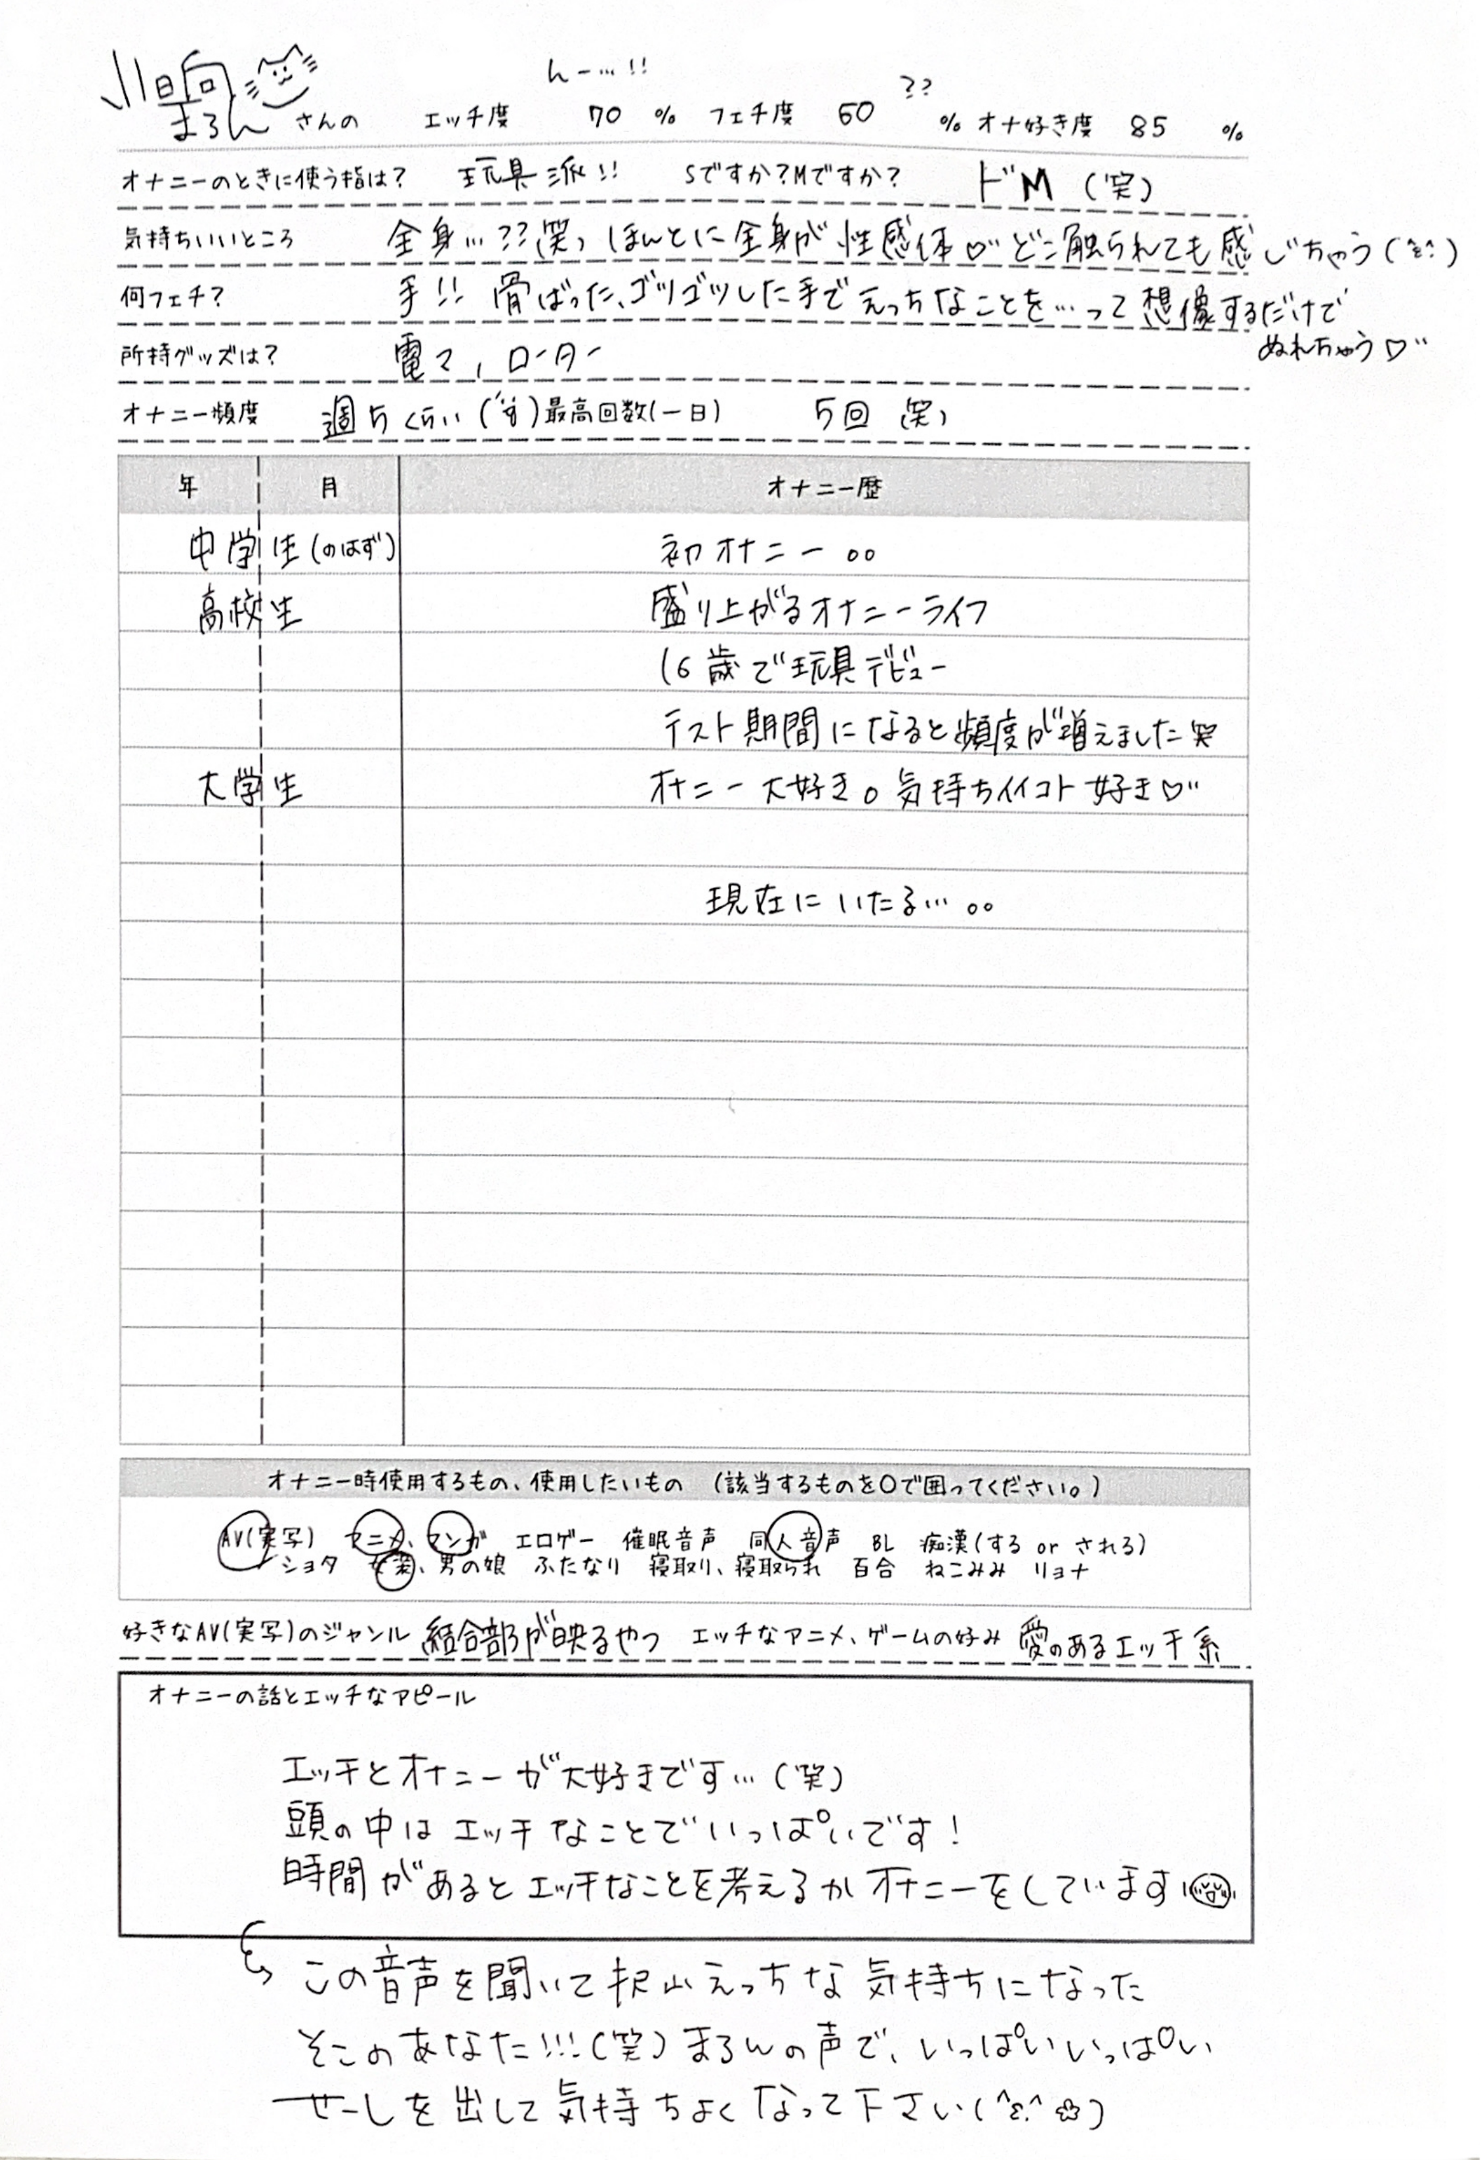 小日向
まろん さんの エッチ度 んー…!! 70 % フェチ度 60 ?? % オナ好き度 85 %
オナニーのときに使う指は? 玩具派!! Sですか?Mですか? ドM (笑)
気持ちいいところ 全身…??笑) ほんとに全身が性感体♡ どこ触られても感じちゃう
何フェチ? 手!! 骨ばった、ゴツゴツした手でえっちなことを…って想像するだけで
ぬれちゃう♡
所持グッズは? 電マ, ローター
オナニー頻度 週5くらい 最高回数(一日) 5回 笑)
年 月 オナニー歴
大学生 オナニー大好き。気持ちイイコト好き♡
現在にいたる…。。
オナニー時使用するもの、使用したいもの (該当するものを○で囲ってください。)
AV(実写) アニメ、マンガ エロゲー 催眠音声 同人音声 BL 痴漢(する or される)
男の娘 ふたなり 寝取り、寝取られ 百合 ねこみみ リョナ
好きなAV(実写)のジャンル 結合部が映るやつ エッチなアニメ、ゲームの好み 愛のあるエッチ系
オナニーの話とエッチなアピール
エッチとオナニーが大好きです…(笑)
頭の中はエッチなことでいっぱいです!
時間があるとエッチなことを考えるかオナニーをしています
この音声を聞いて沢山えっちな気持ちになった
そこのあなた!!!(笑) まろんの声で、いっぱいいっぱい
せーしを出して気持ちよくなって下さい